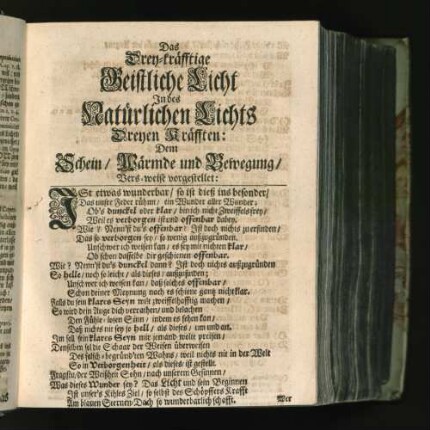 Das
Drey-kräfftige
Geistliche Licht
In des
Natürlichen Lichts
Dreyen Kräfften:
Dem
Schein/ Wärmde und Bewegung/
Vers-weise vorgestellet:
ISt etwas wunderbar/ so ist dieß ins besonder/
Das unser Jeder rühm/ ein Wunder aller Wunder;
Ob's dunckel oder klar/ bin ich nicht Zweiffels frey/
Weil es verborgen ist und offenbar dabey.
Wie? Nennst du's offenbar? Ist doch nichts zuerfinden/
Das so verborgen sey/ so wenig außzugründen.
Unschwer ich weisen kan/ es sey mit nichten klar/
Ob schon desselbe dir geschienen offenbar.
Wie? Nennst du's dunckel dann? Ist doch nichts außzugründen
So helle/ noch so leicht/ als dieses/ außzufinden;
Unschwer ich weisen kan/ daß solches offenbar/
Schon deiner Meynung nach es schiene gantz nicht klar.
Falls du sein klares Seyn wilt zweiffelhafftig machen/
So wird dein Auge dich verrathen/ und belachen
Den Fühle-losen Sinn/ indem es sehen kan/
Daß nichts nit sey so hell/ als dieses/ um und an.
Im fall sein klares Seyn wilt jemand weite preisen/
Demselben sol die Schaar der Weisen überweisen
Des falsch-begründ'ten Wahns/ weil nichts nit in der Welt
So in Verborgenheit/ als dieses ist gestellt.
Fragstu/ der Weißheit Sohn/ nach unserem Gesinnen/
Was dieses Wunder sey? Das Licht und sein Beginnen
Ist unser's Kühles Ziel/ so selbst des Schöpffers Krafft
Am blauen Sternen Dach so wunderbarlich schafft.
Wer